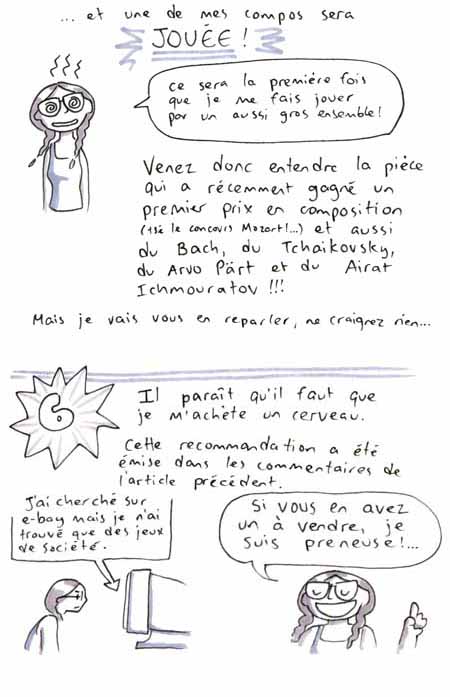 ... et une de mes compos sera
JOUÉE !
ce sera la première fois
que je me fais jouer
par un aussi gros ensemble!
Venez donc entendre la pièce
qui a récemment gagné un
premier prix en composition
(tsé le concours Mozart!...) et aussi
du Bach, du Tchaikovsky,
du Arvo Pärt et du Airat
Ichmouratov !!!
Mais je vais vous en reparler, ne craignez rien...
6
Il paraît qu'il faut que
je m'achète un cerveau.
Cette recommandation a été
émise dans les commentaires de
l'article précédent.
J'ai cherché sur
e-bay mais je n'ai
trouvé que des jeux
de société.
Si vous en avez
un à vendre, je
suis preneuse!...